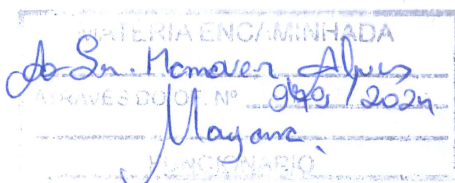 MATÉRIA ENCAMINHADA
Ao Sr. Alves
ATRAVÉS DO OF. Nº /2024
Mayara.
FUNCIONÁRIO